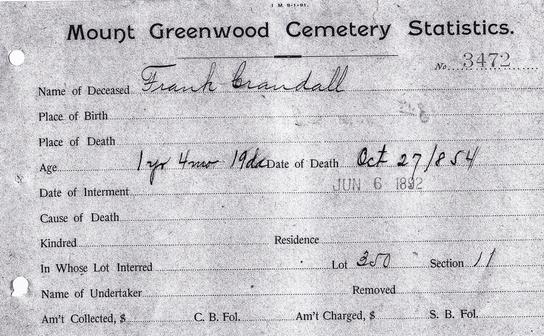 1 M. 9-1-91.
Mount Greenwood Cemetery Statistics.
No. 3472
Name of Deceased Frank Crandall
Place of Birth
Place of Death
Age 1 yr 4 mo 19 ds Date of Death Oct 27/854
Date of Interment JUN 6 1892
Cause of Death
Kindred Residence
In Whose Lot Interred Lot 350 Section 11
Name of Undertaker Removed
Am't Collected, $ C. B. Fol. Am't Charged, $ S. B. Fol.